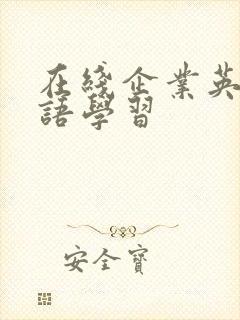 在綫企業英
語學習
安全寶